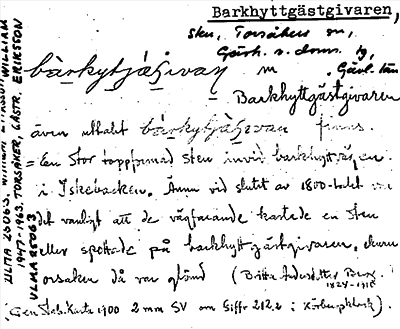 Barkhyttgästgivaren,
sten, Torsåkers sn,
Gästr. s. doms. tg,
Gävl. län
m
= Barkhyttgästgivaren
även uttalat finns.
= En stor toppformad sten invid barkhyttvägen
i Iskebacken. Ännu vid slutet av 1800-talet var
det vanligt att de vägfarande kastade en sten
eller spottade på barkhyttgästgivaren, ehuru
orsaken då var glömd (Britta Andersdotter Berg.
1824-1918
(Gen. Stab. Karta 1900 2 mm SV om Siffr 212.2 i
ULMA 25063. WILLIAM ERIKSSON
1947-1963. TORSÅKER, GÄSTR.